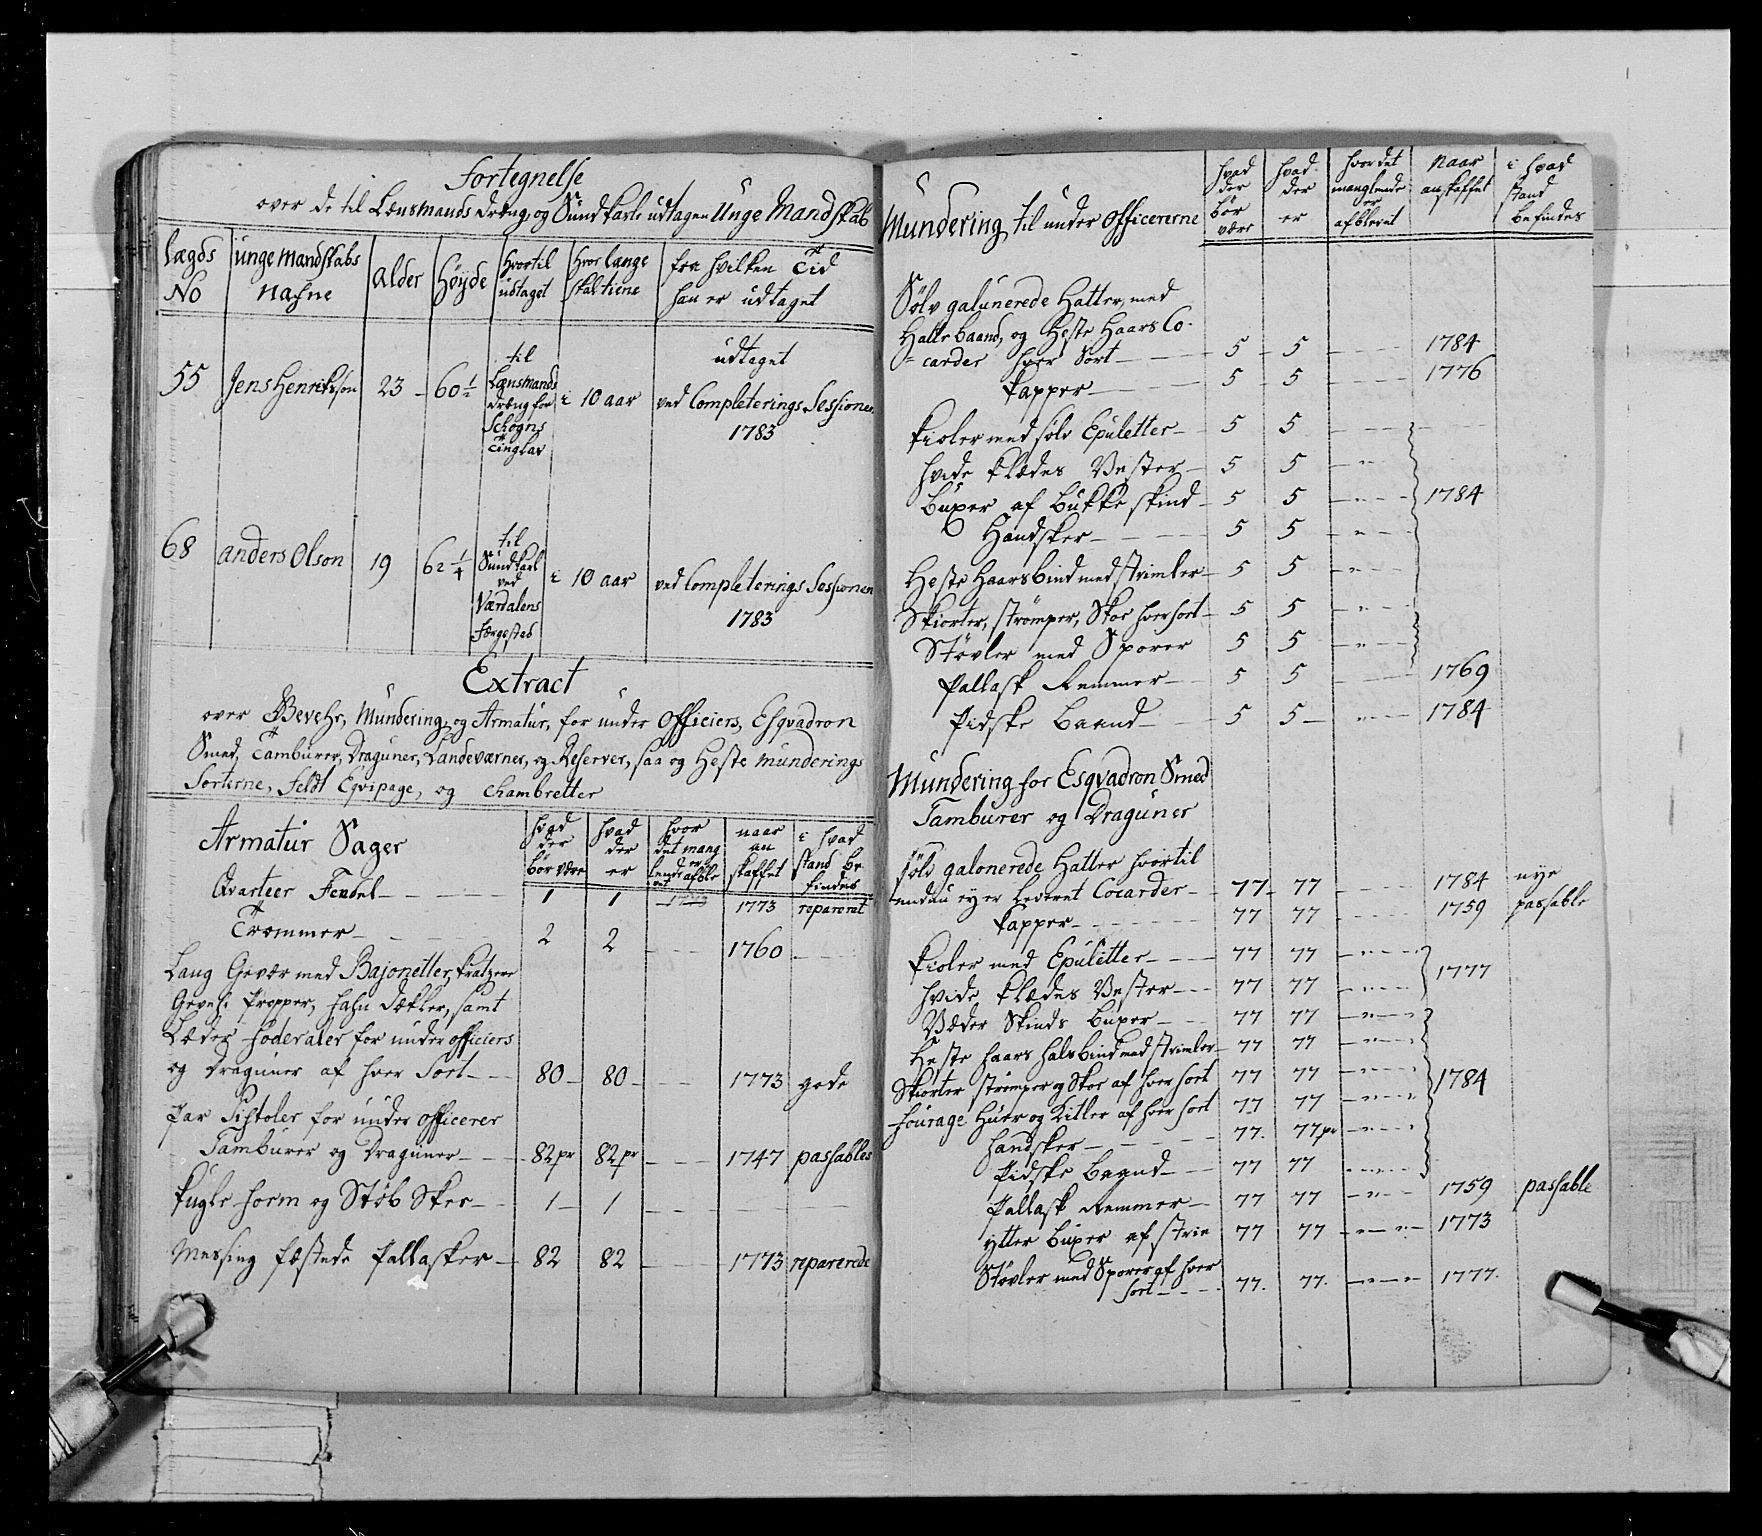 Fortegnelse
over de til Lænsmands Dræng, og Sund Karle udtagen Unge Mandskab
Lægds No | unge Mandskabs Nafne | Alder | Høyde | Hvortil udtaget | Hvor lange skal tiene | fra hvilken Tid han er udtaget
55 | Jens Henrikson | 23 | 60 1/2 | til Lænsmands Dræng for Schogns Tinglav | i 10 aar | udtaget ved Completerings Sessionen 1783
68 | Anders Olson | 19 | 62 1/4 | til Sundkarl ved Værdalens Færgested | i 10 aar | ved Completerings Sessionen 1783
Extract
over Gevehr, Mundering, og Armatur, for under Officiers, Esqvadron
Smed, Tamburer, Draguner, Landeværner, og Reserver, saa og Heste munderings
Sorterne, Feldt Eqvipage, og Chambretter
Armatur Sager | hvad der bør være | hvad der er | hvor det manglende er afblevet | naar anskaffet | i hvad stand befindes
Qvarteer Fendel | 1 | 1 | 1773 | 1773 | repareret
Trommer | 2 | 2 | 1760
Lang Gevær med Bajonetter, Kratzere
Gevehr Propper, Hahn Dækler, samt
Læder Foderaler for under officiers
og Draguner af hver Sort | 80 | 80 | 1773 | gode
Par Pistoler for under officerer
Tamburer og Draguner | 82 pr | 82 pr | 1747 | passables
Kugle Form og Støb Skee | 1 | 1
Messing fæstede Pallasker | 82 | 82 | 1773 | reparerede
Mundering til under Officererne | hvad der bør være | hvad der er | hvor det manglende er afblevet | Naar anskaffet | i hvad stand befindes
Sølv galunerede Hatter, med
Hatte baand, og Heste Haars Co-
carder hver Sort | 5 | 5 | 1784
Kapper | 5 | 5 | 1776
Kioler med sølv Epuletter | 5 | 5
hvide Klædes Vester | 5 | 5
Buxer af Bukke skind | 5 | 5 | 1784
Handsker | 5 | 5
Heste Haars bind med strimler | 5 | 5
Skiorter, strømper, Skoe hver sort | 5 | 5
Støvler med Sporer | 5 | 5
Pallask Remmer | 5 | 5 | 1769
Pidske Baand | 5 | 5 | 1784
Mundering for Esqvadron Smed
Tamburer og Draguner
sølv galonerede Hatter hvortil
endnu ey er leveret Cocarder | 77 | 77 | 1784 | nye
Kapper | 77 | 77 | 1759 | passable
Kioler med Epuletter | 77 | 77
hvide Klædes Vester | 77 | 77 | 1777
Væder Skinds Buxer | 77 | 77
Heste haars halsbind med strimler | 77 | 77
Skiorter strømper og Skoe af hver sort | 77 | 77 | 1784
Fourage Huer og Kitler af hver sort | 77 | 77
Handsker | 77 | 77 pr
Pidske Baand | 77 | 77
Pallask Remmer | 77 | 77 | 1759 | passable
ytter Buxer af strie | 77 | 77 | 1773
Støvler med Sporer af hver
sort | 77 | 77 | 1777